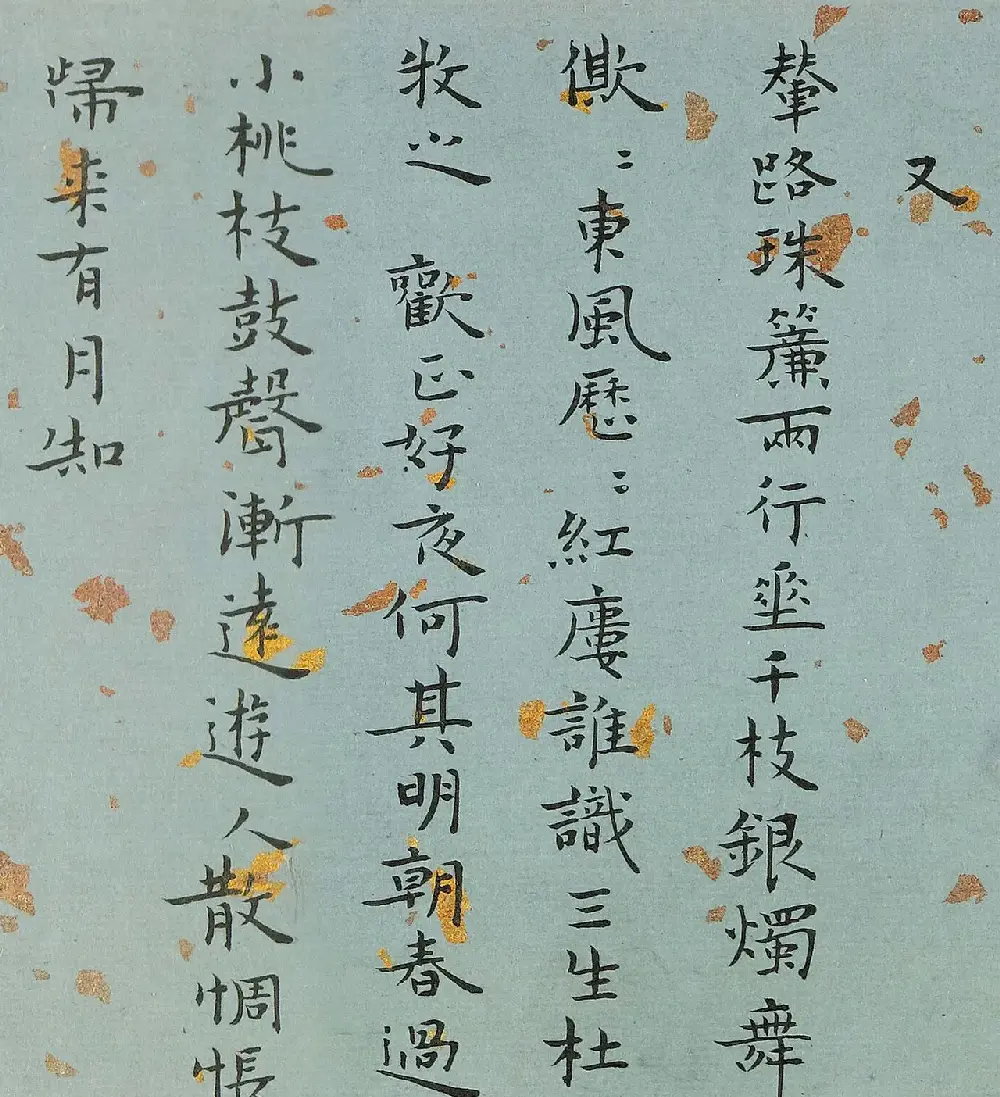 又
輦路珠簾兩行垂千枝銀燭舞
僛〻東風歷〻紅廔誰識三生杜
牧之 歡正好夜何其明朝春過
小桃枝鼓聲漸遠遊人散惆悵
歸来有月知